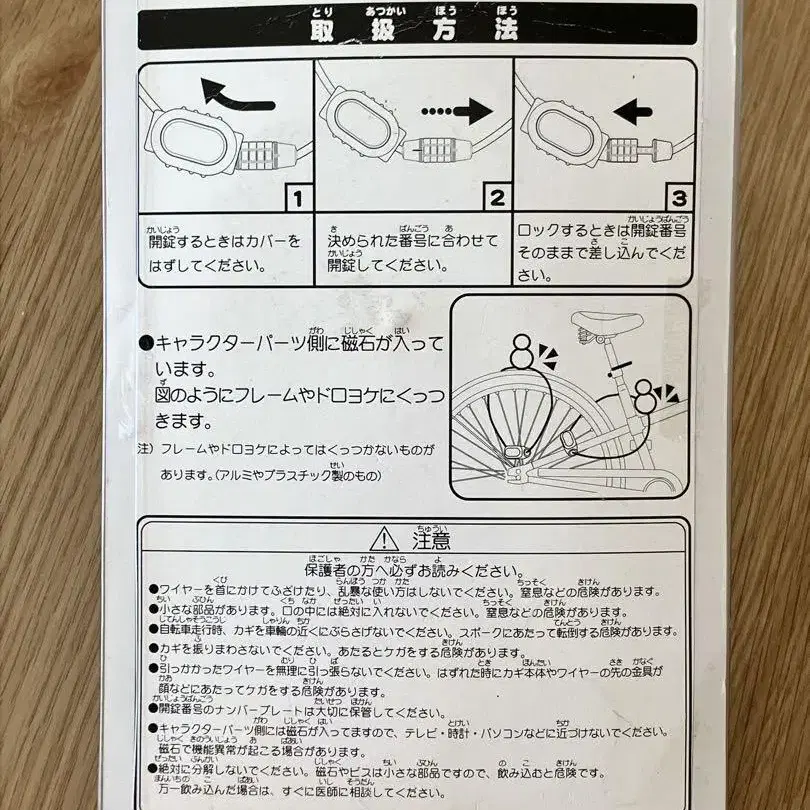 取扱方法
1
2
3
開錠するときはカバーを
はずしてください。
決められた番号に合わせて
開錠してください。
ロックするときは開錠番号
そのままで差し込んでくだ
さい。
●キャラクターパーツ側に磁石が入って
います。
図のようにフレームやドロヨケにくっつ
きます。
注）フレームやドロヨケによってはくっつかないものが
あります。(アルミやプラスチック製のもの)
⚠ 注意
保護者の方へ必ずお読みください。
●ワイヤーを首にかけてふざけたり、乱暴な使い方はしないでください。窒息などの危険があります。
●小さな部品があります。口の中には絶対に入れないでください。窒息などの危険があります。
●自転車走行時、カギを車輪の近くにぶらさげないでください。スポークにあたって転倒する危険があります。
●カギを振りまわさないでください。あたるとケガをする危険があります。
●引っかかったワイヤーを無理に引っ張らないでください。はずれた時にカギ本体やワイヤーの先の金具が
顔などにあたってケガをする危険があります。
●開錠番号のナンバープレートは大切に保管してください。
●キャラクターパーツ側には磁石が入ってますので、テレビ・時計・パソコンなどに近づけないでください。
磁石で機能異常が起こる場合があります。
●絶対に分解しないでください。磁石やビスは小さな部品ですので、飲み込むと危険です。
万一飲み込んだ場合は、すぐに医師に相談してください。